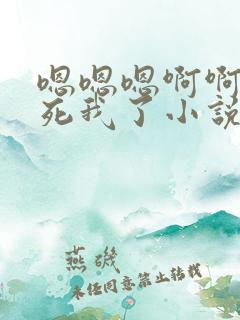 嗯嗯嗯啊啊
死我了小说
燕矶
未经同意禁止转载